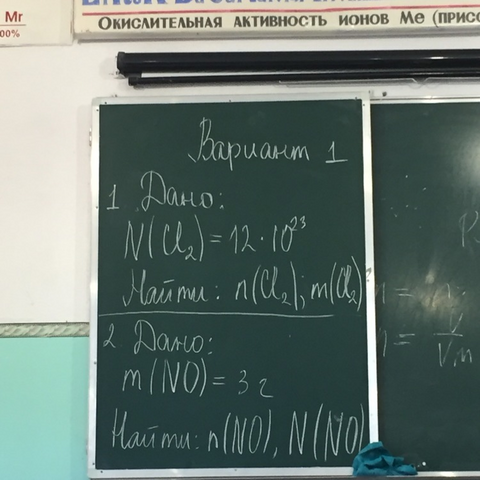 Mr
00%
Окислительная активность ионов Ме (присо
Вариант 1
1 Дано:
N(Cl₂) = 12 · 10²³
Найти: n(Cl₂); m(Cl₂)
2 Дано:
m(NO) = 3 г
Найти: n(NO), N(NO)